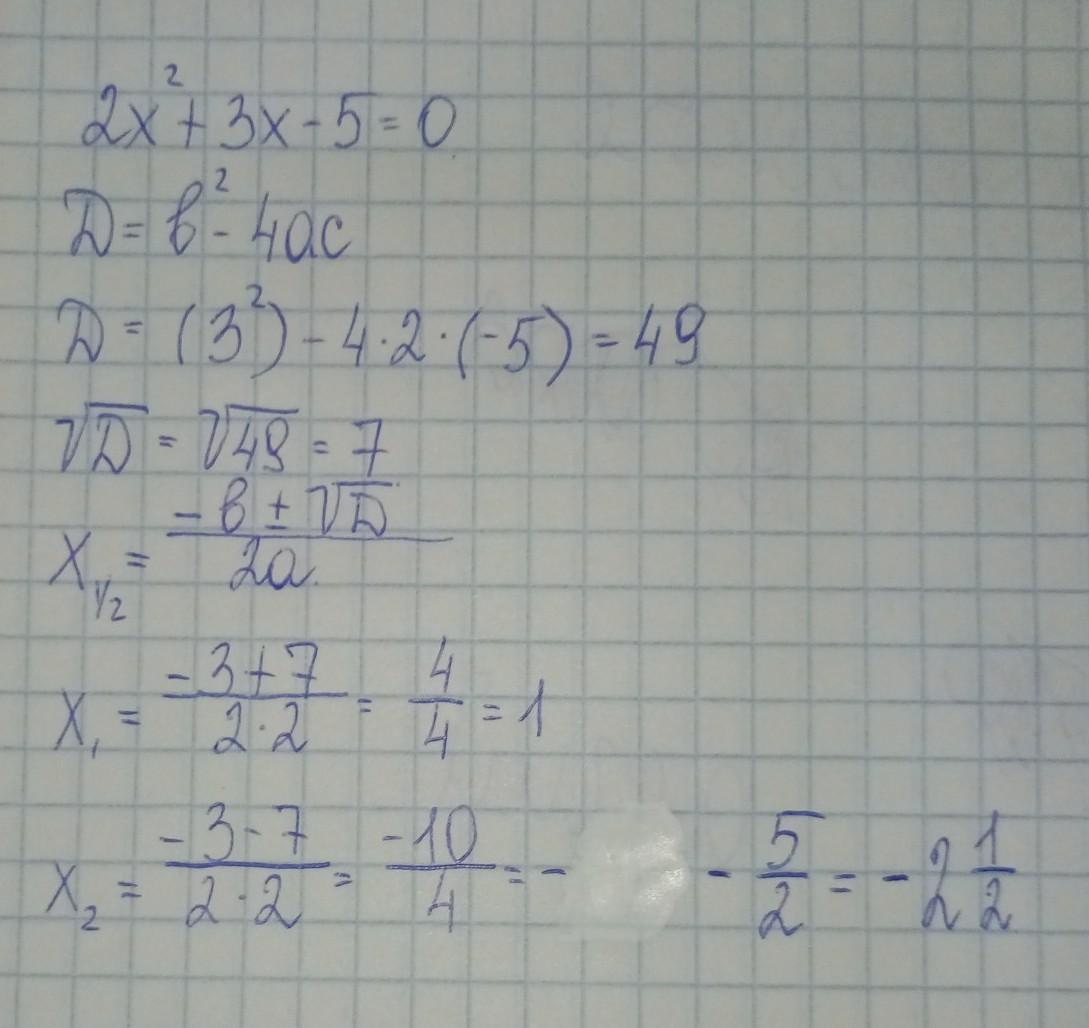 2x² + 3x - 5 = 0
D = b² - 4ac
D = (3²) - 4·2·(-5) = 49
√D = √49 = 7
x₁/₂ = (-b ± √D)/(2a)
x₁ = (-3+7)/(2·2) = 4/4 = 1
x₂ = (-3-7)/(2·2) = -10/4 = - - 5/2 = -2 1/2